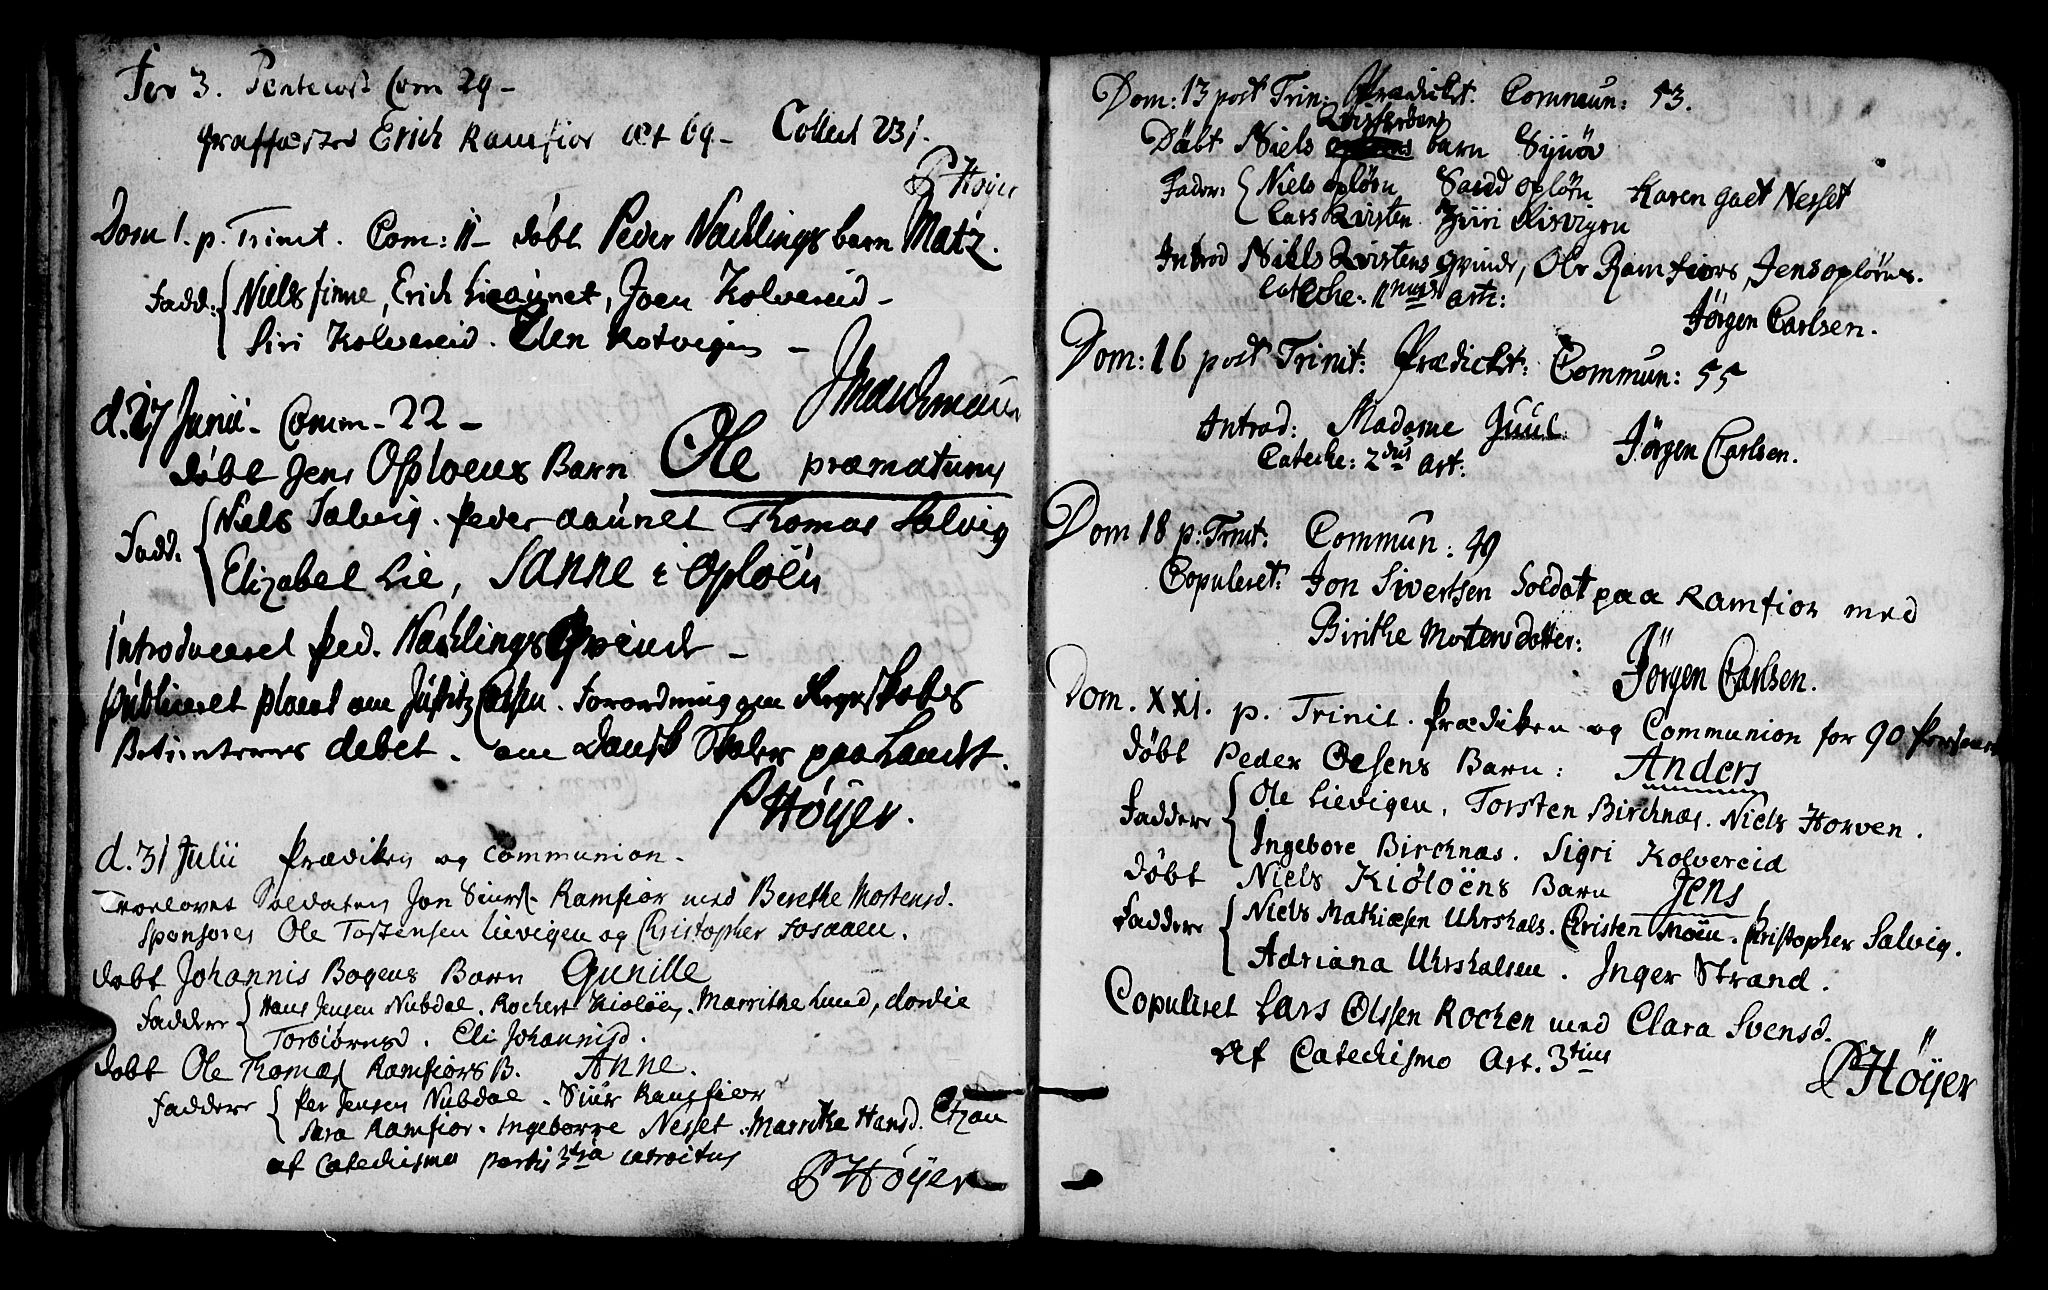 Fer 3. Pentecost Com 29 –
graffæsted Erich Ramfior æt 69 – Collect 23 f.
P Høyer
Dom 1. p. Trinit. Com: 11 – døbt Peder Nachlings barn Matz.
Fadd: Niels finne, Erich Lieaunet, Joen Kolvereid –
Siri Kolvereid. Elen Kotvigen –
d. 27 Junii – Comm – 22 –
døbt Jens Oploens Barn Ole præmaturus
Fadd: Niels Salvig. Peder aaunet Thomas Salvig
Elizabet Lie, Sanne i Oploën
Introduceret Ped. Nachlings Qvinde –
publiceret placat om Justitz Cassen. Forordning om Regnskabs
Betienternes debet. om Dansk Skoler paa Landet.
P Høyer.
d. 31 Julii Prædiken og Communion.
Troelovet Soldaten Jon Siurs. Ramfior med Berethe Mortensd.
Sponsores Ole Tostensen Lievigen og Christopher Fosaaen.
døbt Johannis Bogens Barn Gunille
Faddere Hans Jensen Nubdal. Rochert Kioløen, Marrithe Lund, dordie
Torbiörnsd. Eli Johannisd.
døbt Ole Thomæs Ramfiors B. Anne.
Faddere Per Jensen Nubdal. Siur Ramfior
Sara Ramfior. Ingeborre Nesset. Marrithe Hansd. Etzau
af Catechismo partis 3tia introitus
P Høyer
Dom: 13 post Trin: Prædiket. Commun: 53.
Qvistens
Døbt Niels barn Synøv
Fadder: Niels oplörn Sand oplörn Karen gaet Nesset
Lars Qvisten Jüri Kisvigen
Introd Niels Qvistens qvinde, Ole Ramfiors, Jens oplörns.
Cateche: 1mus art:
Jörgen Carlsen.
Dom: 16 post Trinit: Prædiket: Commun: 55
Introd: Madame Juul
Cateche: 2dus art:
Jörgen Carlsen.
Dom 18 p: Trint: Commun: 49
Copuleret: Jon Sivertsen Soldat paa Ramfior med
Birithe Mortensdotter:
Jörgen Carlsen.
Dom. XXI. p. Trinit. Prædiken og Communion for 90 Personer
døbt Peder Oesens Barn: Anders
Faddere Ole Lievigen, Torsten Birchnæs. Niels Horven.
Ingebore Birchnæs. Sigri Kolvereid
døbt Niels Kiöloëns Barn Jens
Faddere Niels Mathiæsen Uhrshals. Christen Moen. Christopher Salvig.
Adriana Uhrshalsen. Inger Strand.
Copuleret Lars Olssen Rochen med Clara Svensd.
Af Catechismo Art. 3tius
P Høyer